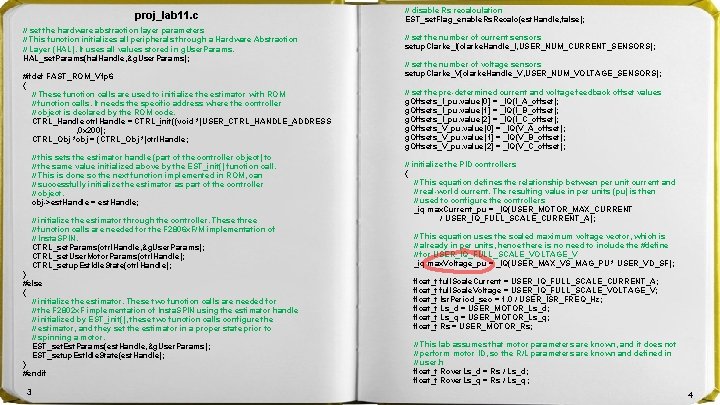 proj_lab11. c
// set the hardware abstraction layer parameters
// This function initializes all peripherals through a Hardware Abstraction
// Layer (HAL). It uses all values stored in gUser Params.
HAL_set Params(hal Handle, &g. User Params);
#ifdef FAST_ROM_V1p6
{
// These function calls are used to initialize the estimator with ROM
// function calls. It needs the specific address where the controller
// object is declared by the ROM code.
CTRL_Handle ctrl Handle = CTRL_init((void *)USER_CTRL_HANDLE_ADDRESS
, 0x200);
CTRL_Obj *obj = (CTRL_Obj *)ctrl Handle;
// this sets the estimator handle (part of the controller object) to
// the same value initialized above by the EST_init() function call.
// This is done so the next function implemented in ROM, can
// successfully initialize the estimator as part of the controller
// object.
obj->est. Handle = est Handle;
// initialize the estimator through the controller. These three
// function calls are needed for the F2806xF/M implementation of
// Insta. SPIN.
CTRL_set. Params(ctrl Handle, &g. User. Params);
CTRL_set User. Motor. Params(ctrl Handle);
CTRL_setup. Est Idle. State(ctrl Handle);
}
#else
{
// initialize the estimator. These two function calls are needed for
// the F2802xF implementation of Insta. SPIN using the estimator handle
// initialized by EST_init(), these two function calls configure the
// estimator, and they set the estimator in a proper state prior to
// spinning a motor.
EST_set. Est. Params(est. Handle, &g. User. Params);
EST_setup. Est Idle. State(est Handle);
}
#endif
3
// disable Rs recalculation
EST_set. Flag_enable. Rs. Recalc(est. Handle, false);
// set the number of current sensors
setup. Clarke_I(clarke. Handle_I, USER_NUM_CURRENT_SENSORS);
// set the number of voltage sensors
setup. Clarke_V(clarke. Handle_V, USER_NUM_VOLTAGE_SENSORS);
// set the pre-determined current and voltage feedback offset values
g. Offsets_I_pu. value[0] = _IQ(I_A_offset);
g. Offsets_I_pu. value[1] = _IQ(I_B_offset);
g. Offsets_I_pu. value[2] = _IQ(I_C_offset);
g. Offsets_V_pu. value[0] = _IQ(V_A_offset);
g. Offsets_V_pu. value[1] = _IQ(V_B_offset);
g. Offsets_V_pu. value[2] = _IQ(V_C_offset);
// initialize the PID controllers
{
// This equation defines the relationship between per unit current and
// real-world current. The resulting value in per units (pu) is then
// used to configure the controllers
_iq max. Current_pu = _IQ(USER_MOTOR_MAX_CURRENT
/ USER_IQ_FULL_SCALE_CURRENT_A);
// This equation uses the scaled maximum voltage vector, which is
// already in per units, hence there is no need to include the #define
// for USER_IQ_FULL_SCALE_VOLTAGE_V
_iq max. Voltage_pu = _IQ(USER_MAX_VS_MAG_PU * USER_VD_SF);
float_t full. Scale. Current = USER_IQ_FULL_SCALE_CURRENT_A;
float_t full. Scale. Voltage = USER_IQ_FULL_SCALE_VOLTAGE_V;
float_t Isr. Period_sec = 1.0 / USER_ISR_FREQ_Hz;
float_t Ls_d = USER_MOTOR_Ls_d;
float_t Ls_q = USER_MOTOR_Ls_q;
float_t Rs = USER_MOTOR_Rs;
// This lab assumes that motor parameters are known, and it does not
// perform motor ID, so the R/L parameters are known and defined in
// user.h
float_t Rover. Ls_d = Rs / Ls_d;
float_t Rover. Ls_q = Rs / Ls_q;
4